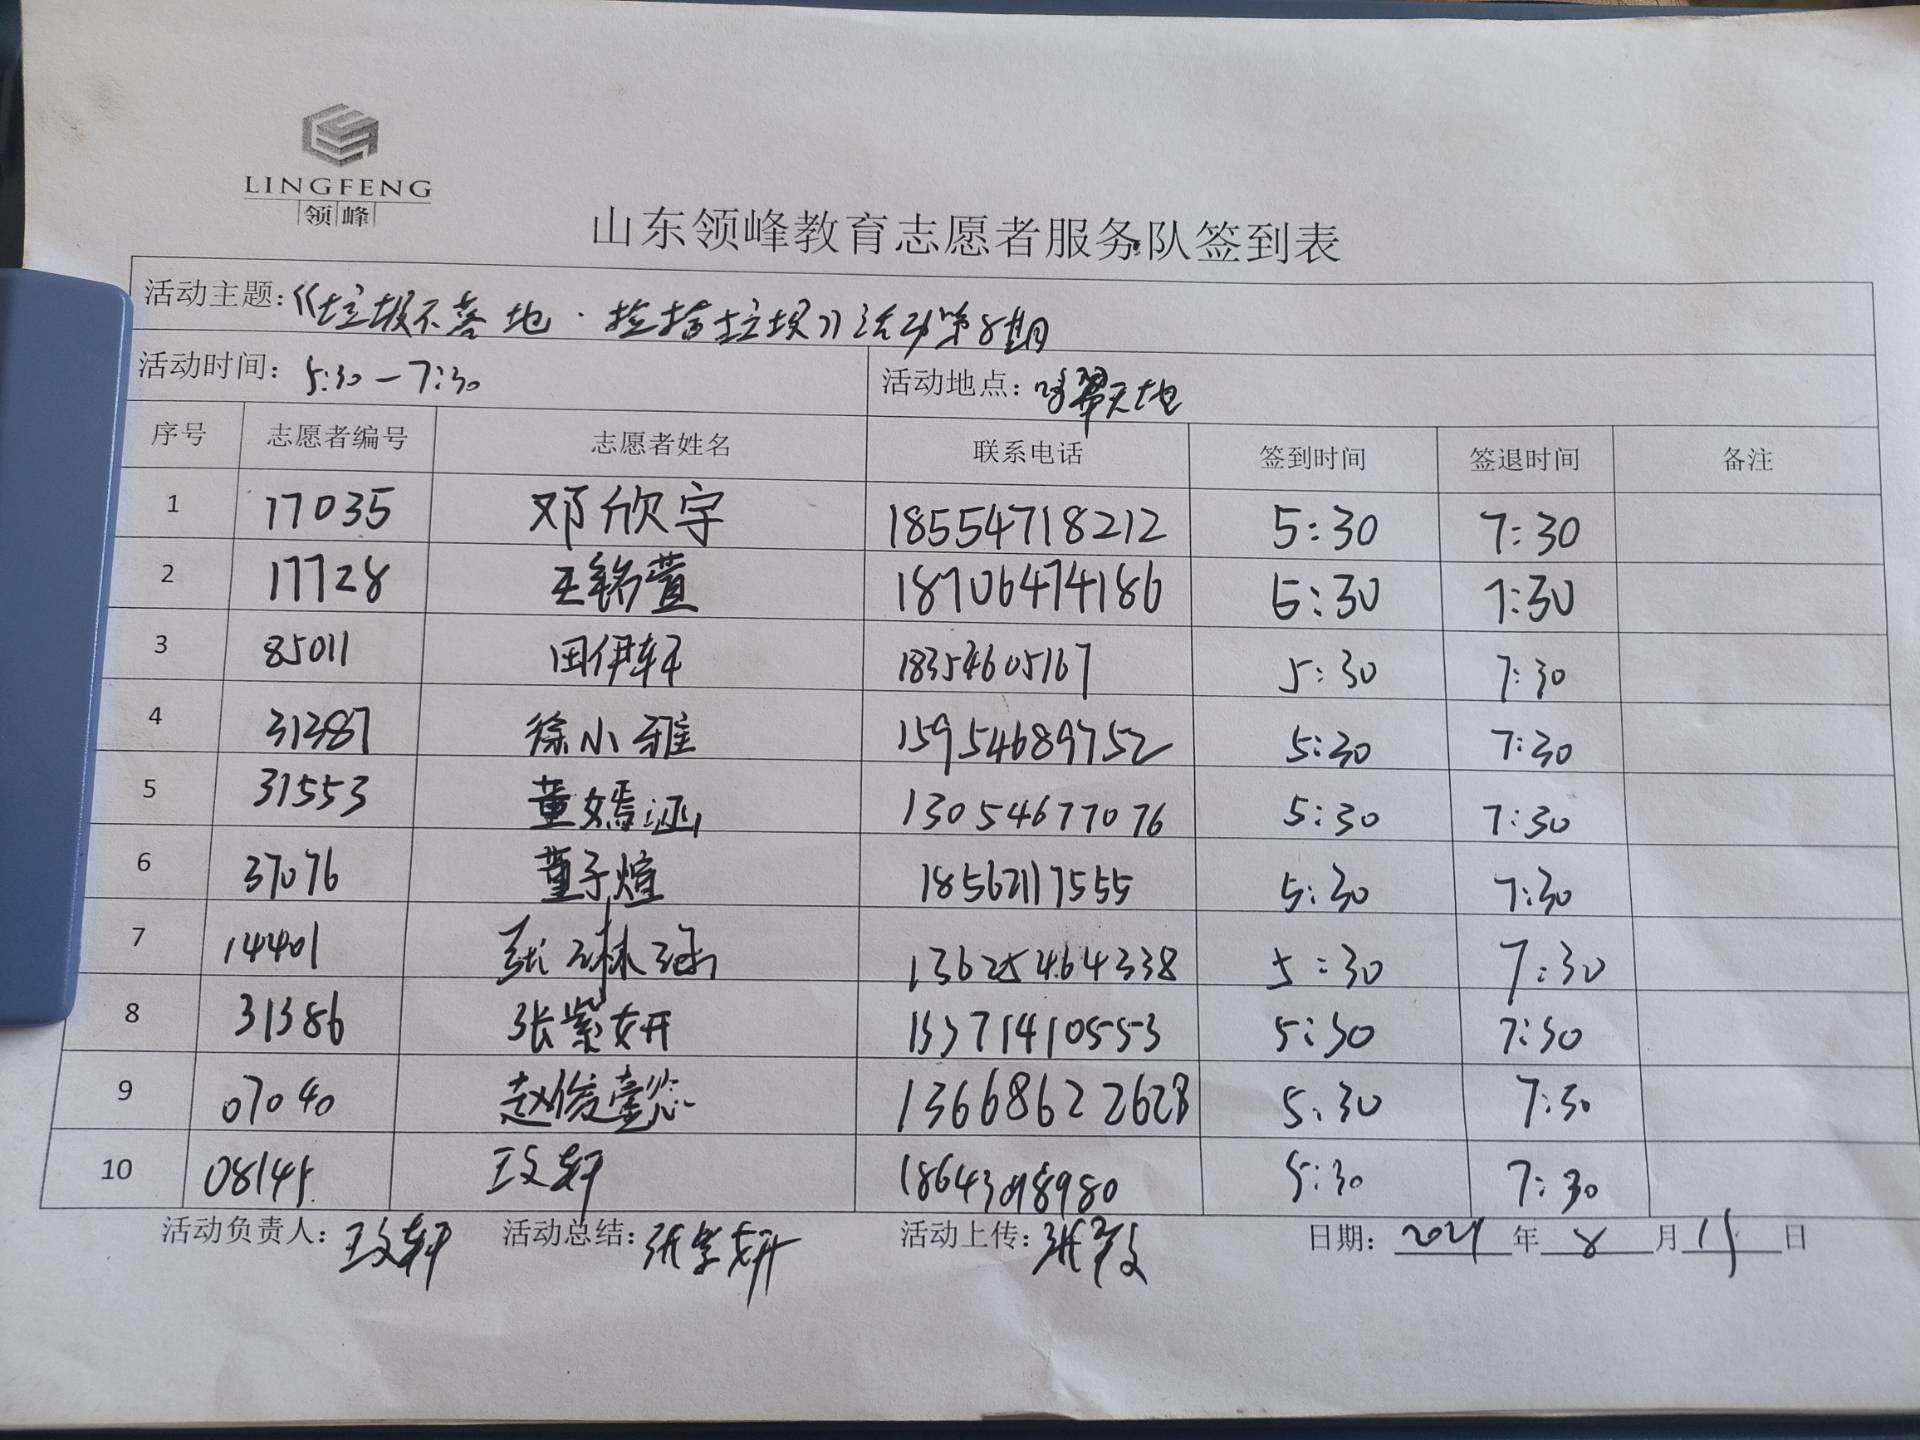 LINGFENG
领峰
山东领峰教育志愿者服务队签到表
活动主题:《垃圾不落地·捡拾垃圾》活动第8期
活动时间: 5:30-7:30 活动地点: 天地
序号 志愿者编号 志愿者姓名 联系电话 签到时间 签退时间 备注
1 17035 邓欣宇 18554718212 5:30 7:30
2 17728 王铭萱 18706474186 5:30 7:30
3 85011 田伊轩 18354605167 5:30 7:30
4 31387 徐小雅 15954689752 5:30 7:30
5 31553 董嫣涵 13054677076 5:30 7:30
6 37076 董子煊 18562117555 5:30 7:30
7 14401 张琳涵 13625464338 5:30 7:30
8 31386 张紫妍 13371410553 5:30 7:30
9 07040 赵俊懿 13668622628 5:30 7:30
10 08145 王文轩 5:30 7:30
活动负责人: 王文轩 活动总结: 张紫妍 活动上传: 张 日期: 2021 年 8 月 15 日